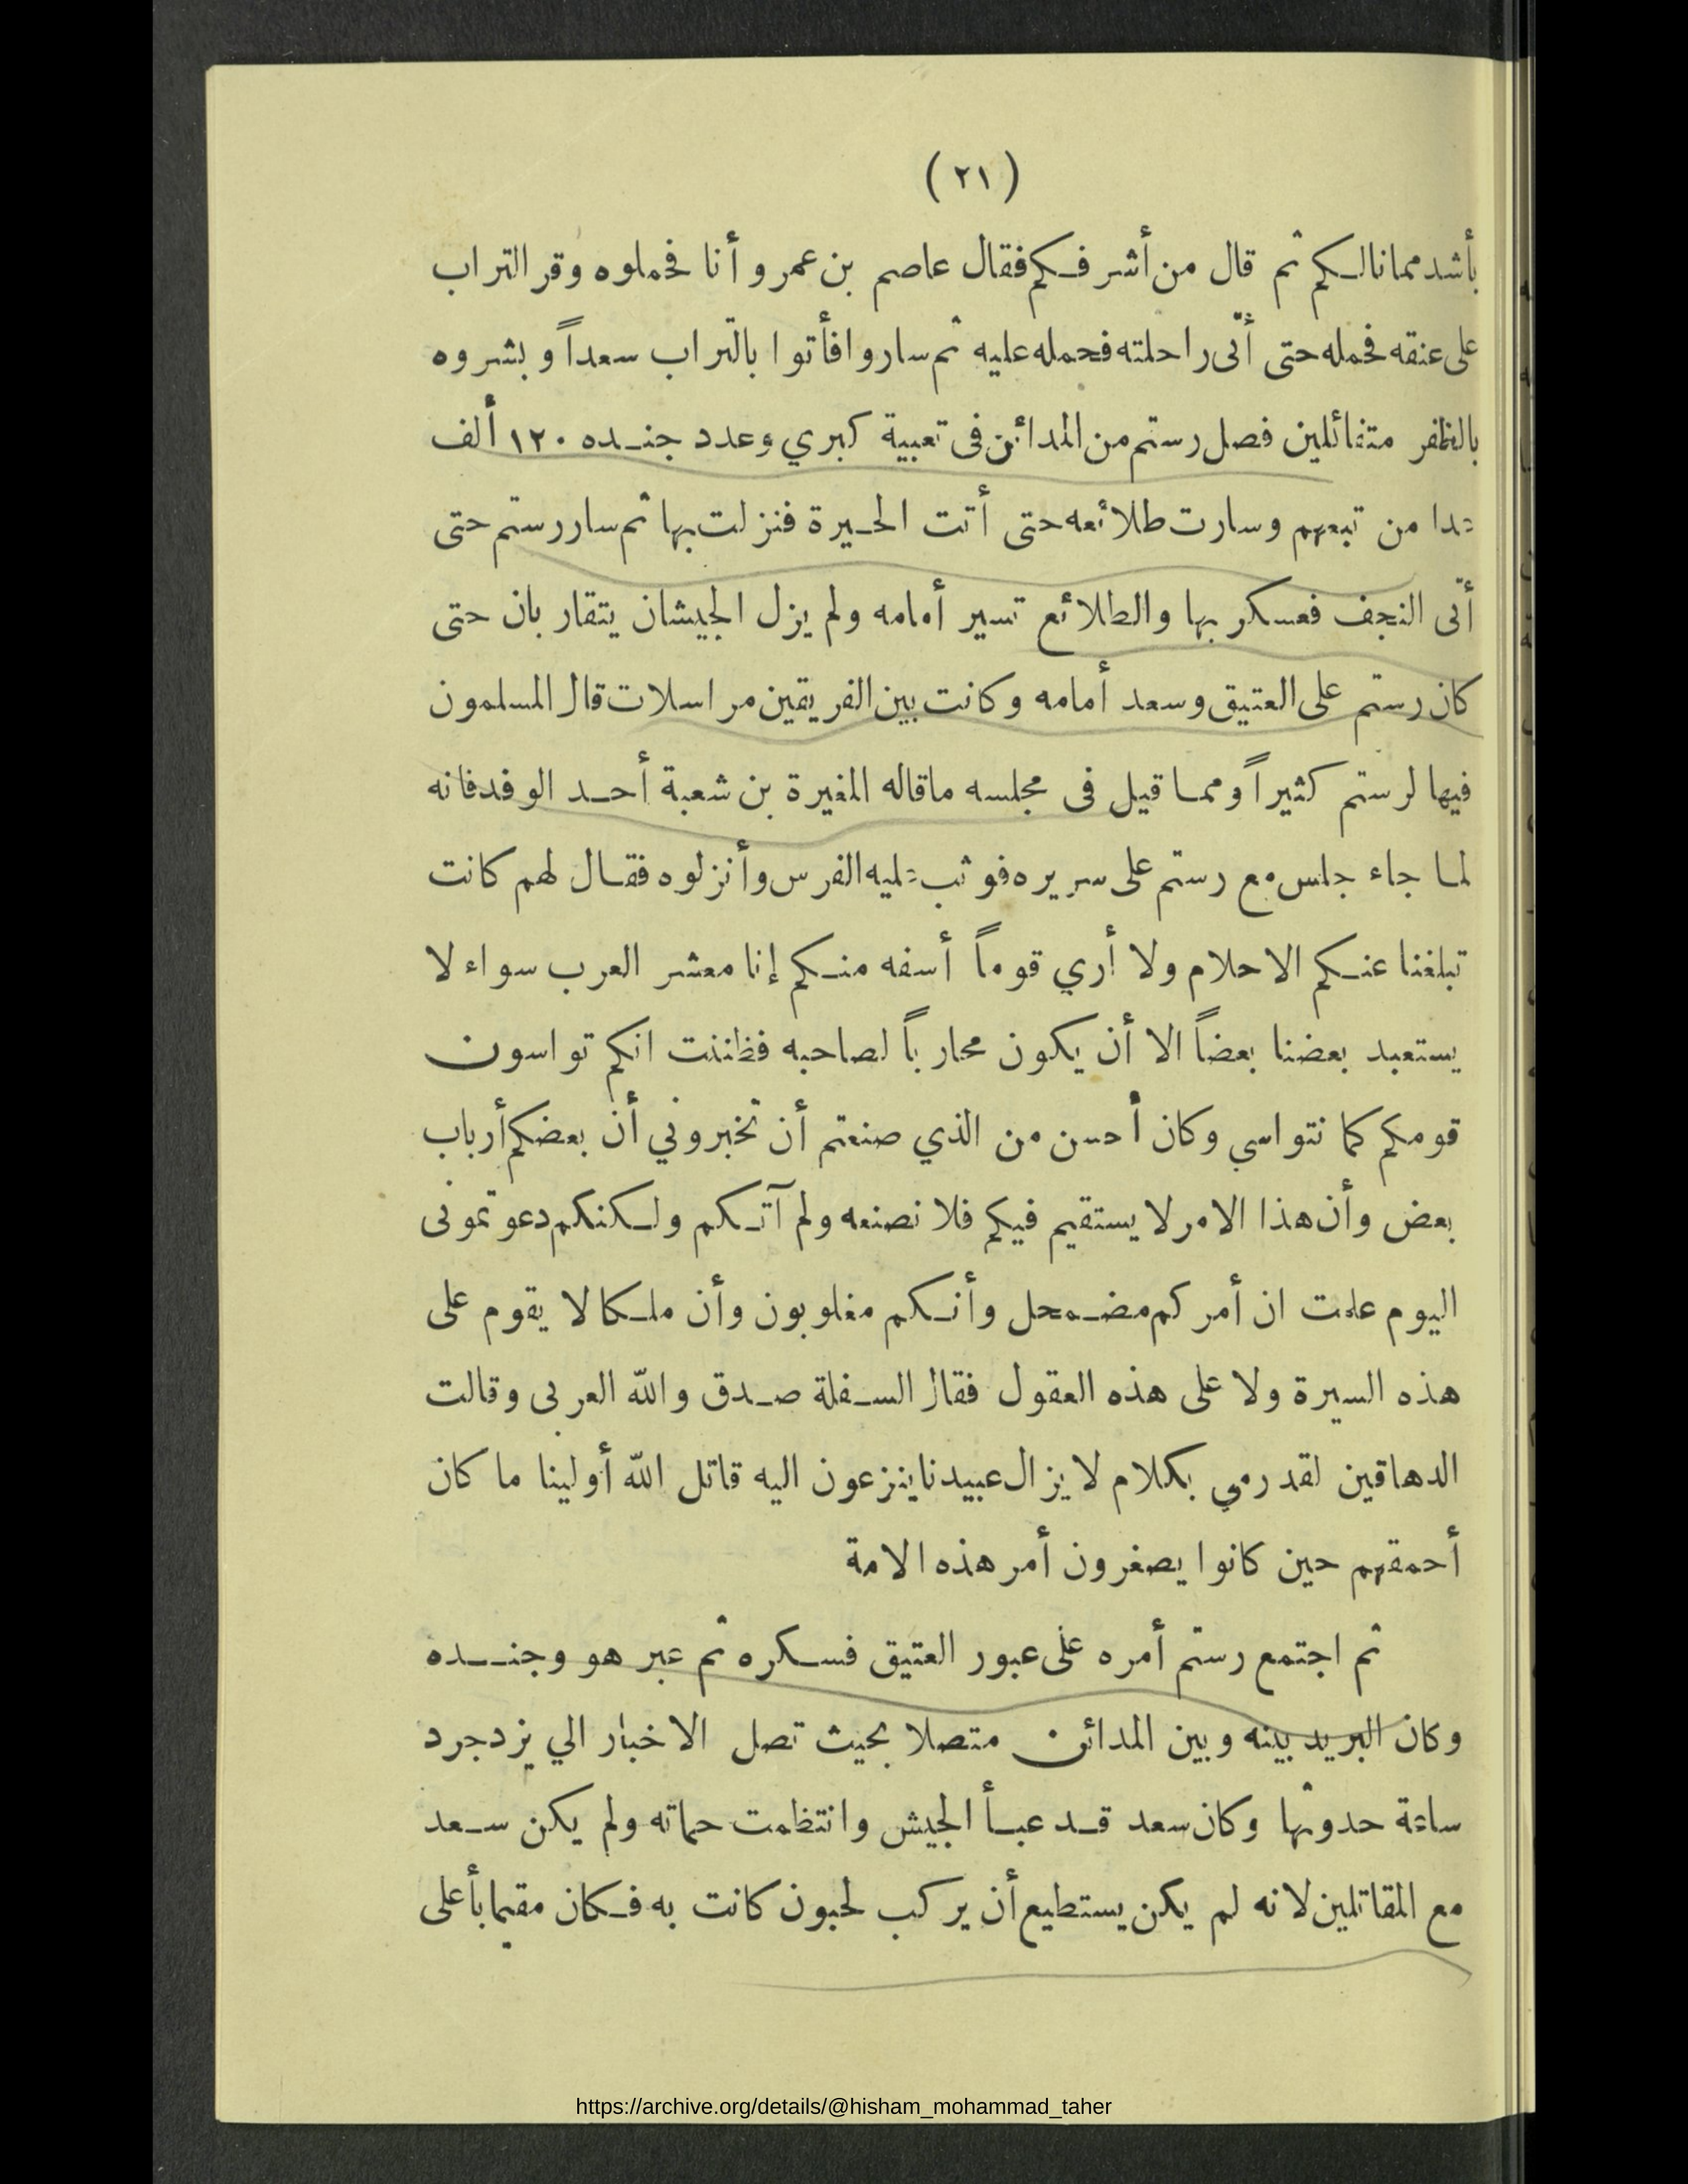 (٢١)
بأشد مما نالكم ثم قال من أشرفكم فقال عاصم بن عمرو أنا فحملوه وقر التراب
على عنقه فحمله حتى أتى راحلته فحمله عليه ثم ساروا فأتوا بالتراب سعداً وبشروه
بالظفر متفائلين فصل رستم من المدائن فى تعبية كبري وعدد جنده ١٢٠ ألف
عدا من تبعهم وسارت طلائعه حتى أتت الحيرة فنزلت بها ثم سار رستم حتى
أتى النجف فعسكر بها والطلائع تسير أمامه ولم يزل الجيشان يتقاربان حتى
كان رستم على العتيق وسعد أمامه وكانت بين الفريقين مراسلات قال المسلمون
فيها لرستم كثيراً ومما قيل فى مجلسه ماقاله المغيرة بن شعبة أحد الوفد فانه
لما جاء جلس مع رستم على سريره فوثب عليه الفرس وأنزلوه فقال لهم كانت
تبلغنا عنكم الاحلام ولا أري قوماً أسفه منكم إنا معشر العرب سواء لا
يستعبد بعضنا بعضاً الا أن يكون محارباً لصاحبه فظننت انكم تواسون
قومكم كما نتواسي وكان أحسن من الذي صنعتم أن تخبروني أن بعضكم أرباب
بعض وأن هذا الامر لا يستقيم فيكم فلا نصنعه ولم آتكم ولكنكم دعوتمونى
اليوم علمت ان أمركم مضمحل وأنكم مغلوبون وأن ملكا لا يقوم على
هذه السيرة ولا على هذه العقول فقال السفلة صدق والله العربى وقالت
الدهاقين لقد رمي بكلام لا يزال عبيدنا ينزعون اليه قاتل الله أولينا ما كان
أحمقهم حين كانوا يصغرون أمر هذه الامة
ثم اجتمع رستم أمره على عبور العتيق فسكره ثم عبر هو وجنده
وكان البريد بينه وبين المدائن متصلا بحيث تصل الاخبار الي يزدجرد
ساعة حدوثها وكان سعد قد عبأ الجيش وانتظمت حماته ولم يكن سعد
مع المقاتلين لانه لم يكن يستطيع أن يركب لحبون كانت به فكان مقيما بأعلى
https://archive.org/details/@hisham_mohammad_taher